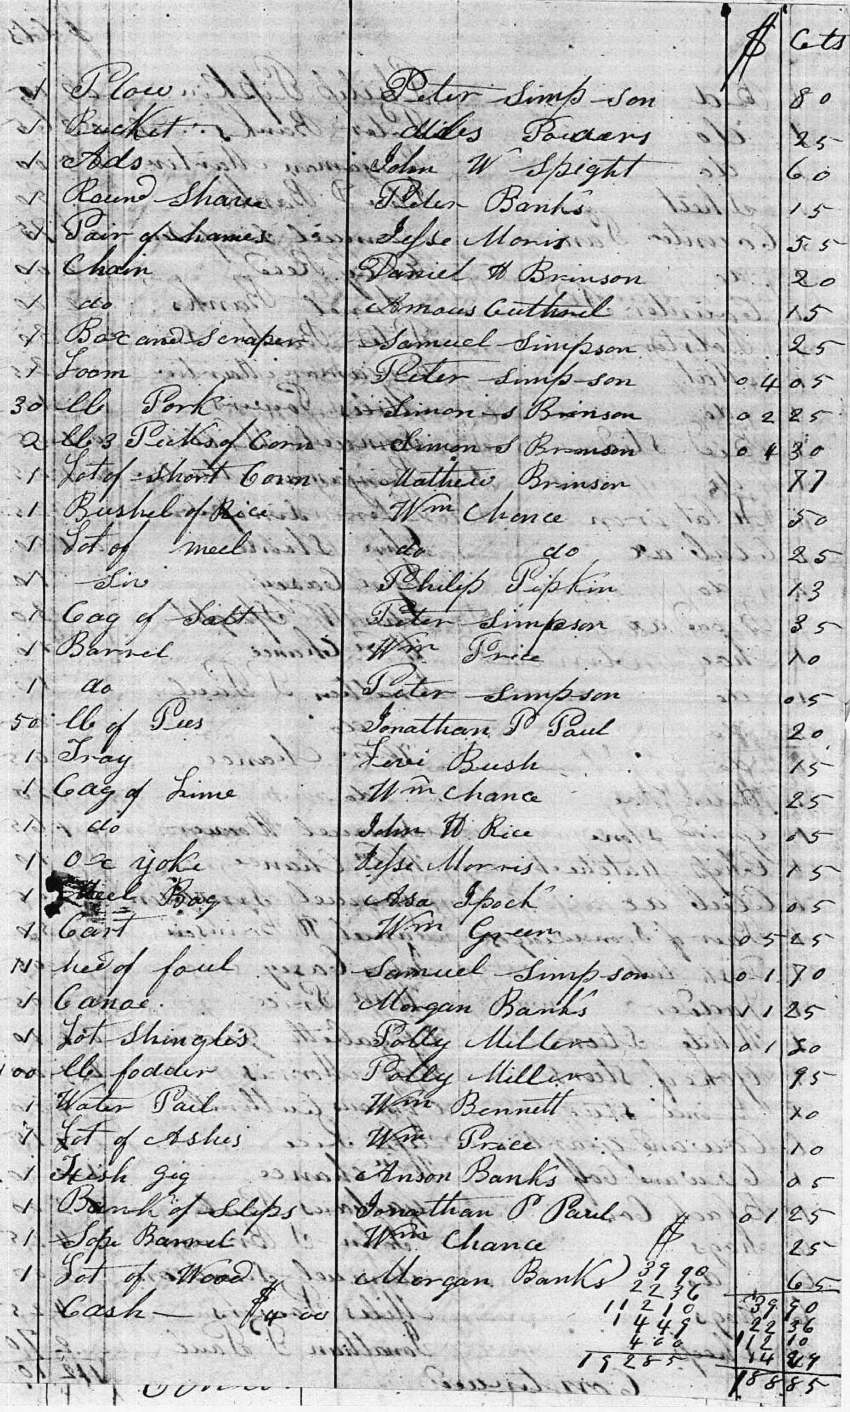 $ Cts
1 Plow Peter Simpson 80
1 Bucket Miles Powers 25
1 Ads John W Spight 60
1 Round Shave Peter Banks 15
1 Pair of hames Jesse Moris 55
1 Chain Daniel H Brinson 20
1 do Amous Guthrel 15
1 Box and Scraper Samuel Simpson 25
1 Loom Peter Simpson 04 05
30 lb Pork Simon S Brinson 02 25
2 bb 3 Pecks of Corn Simon S Brinson 04 30
1 Lot of Short Corn Mathew Brinson 77
1 Bushel of Rice Wm Chance 50
1 Lot of meel do do 25
1 Siv Philip Pipkin 13
1 Cag of Salt Peter Simpson 35
1 Barrel Wm Price 10
1 do Peter Simpson 05
50 lb of Pees Jonathan P Paul 20
1 Tray Levi Bush 15
1 Cag of Lime Wm Chance 25
1 do John H Rice 05
1 ox yoke Jesse Morris 15
1 Meel Bag Asa Ipock 05
1 Cart Wm Green 05 25
hed of foul Samuel Simpson 01 70
1 Canoe Morgan Banks 11 25
1 Lot Shingles Polly Miller 01
100 lb fodder Polly Miller 95
1 Water Pail Wm Bennett 10
1 Lot of Ashes Wm Price 10
1 Fish Gig Anson Banks 05
1 Bank of Slips Jonathan P Paul 01 25
1 Sope Barrel Wm Chance $ 25
1 Lot of Wood Morgan Banks 39 90 65
22 36
Cash — $4 00 112 10 39 90
14 49 22 36
4 00 112 10
192 85 14 49
188 85